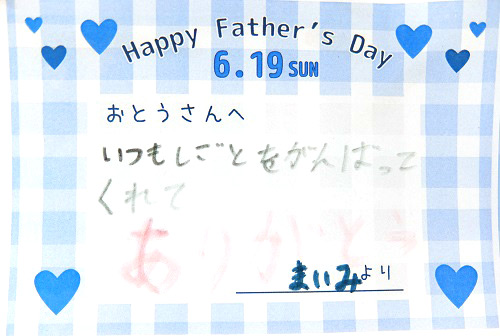 Happy Father's Day
6.19 SUN
おとうさんへ
いつもしごとをがんばって
くれて
ありがとう
まいみより